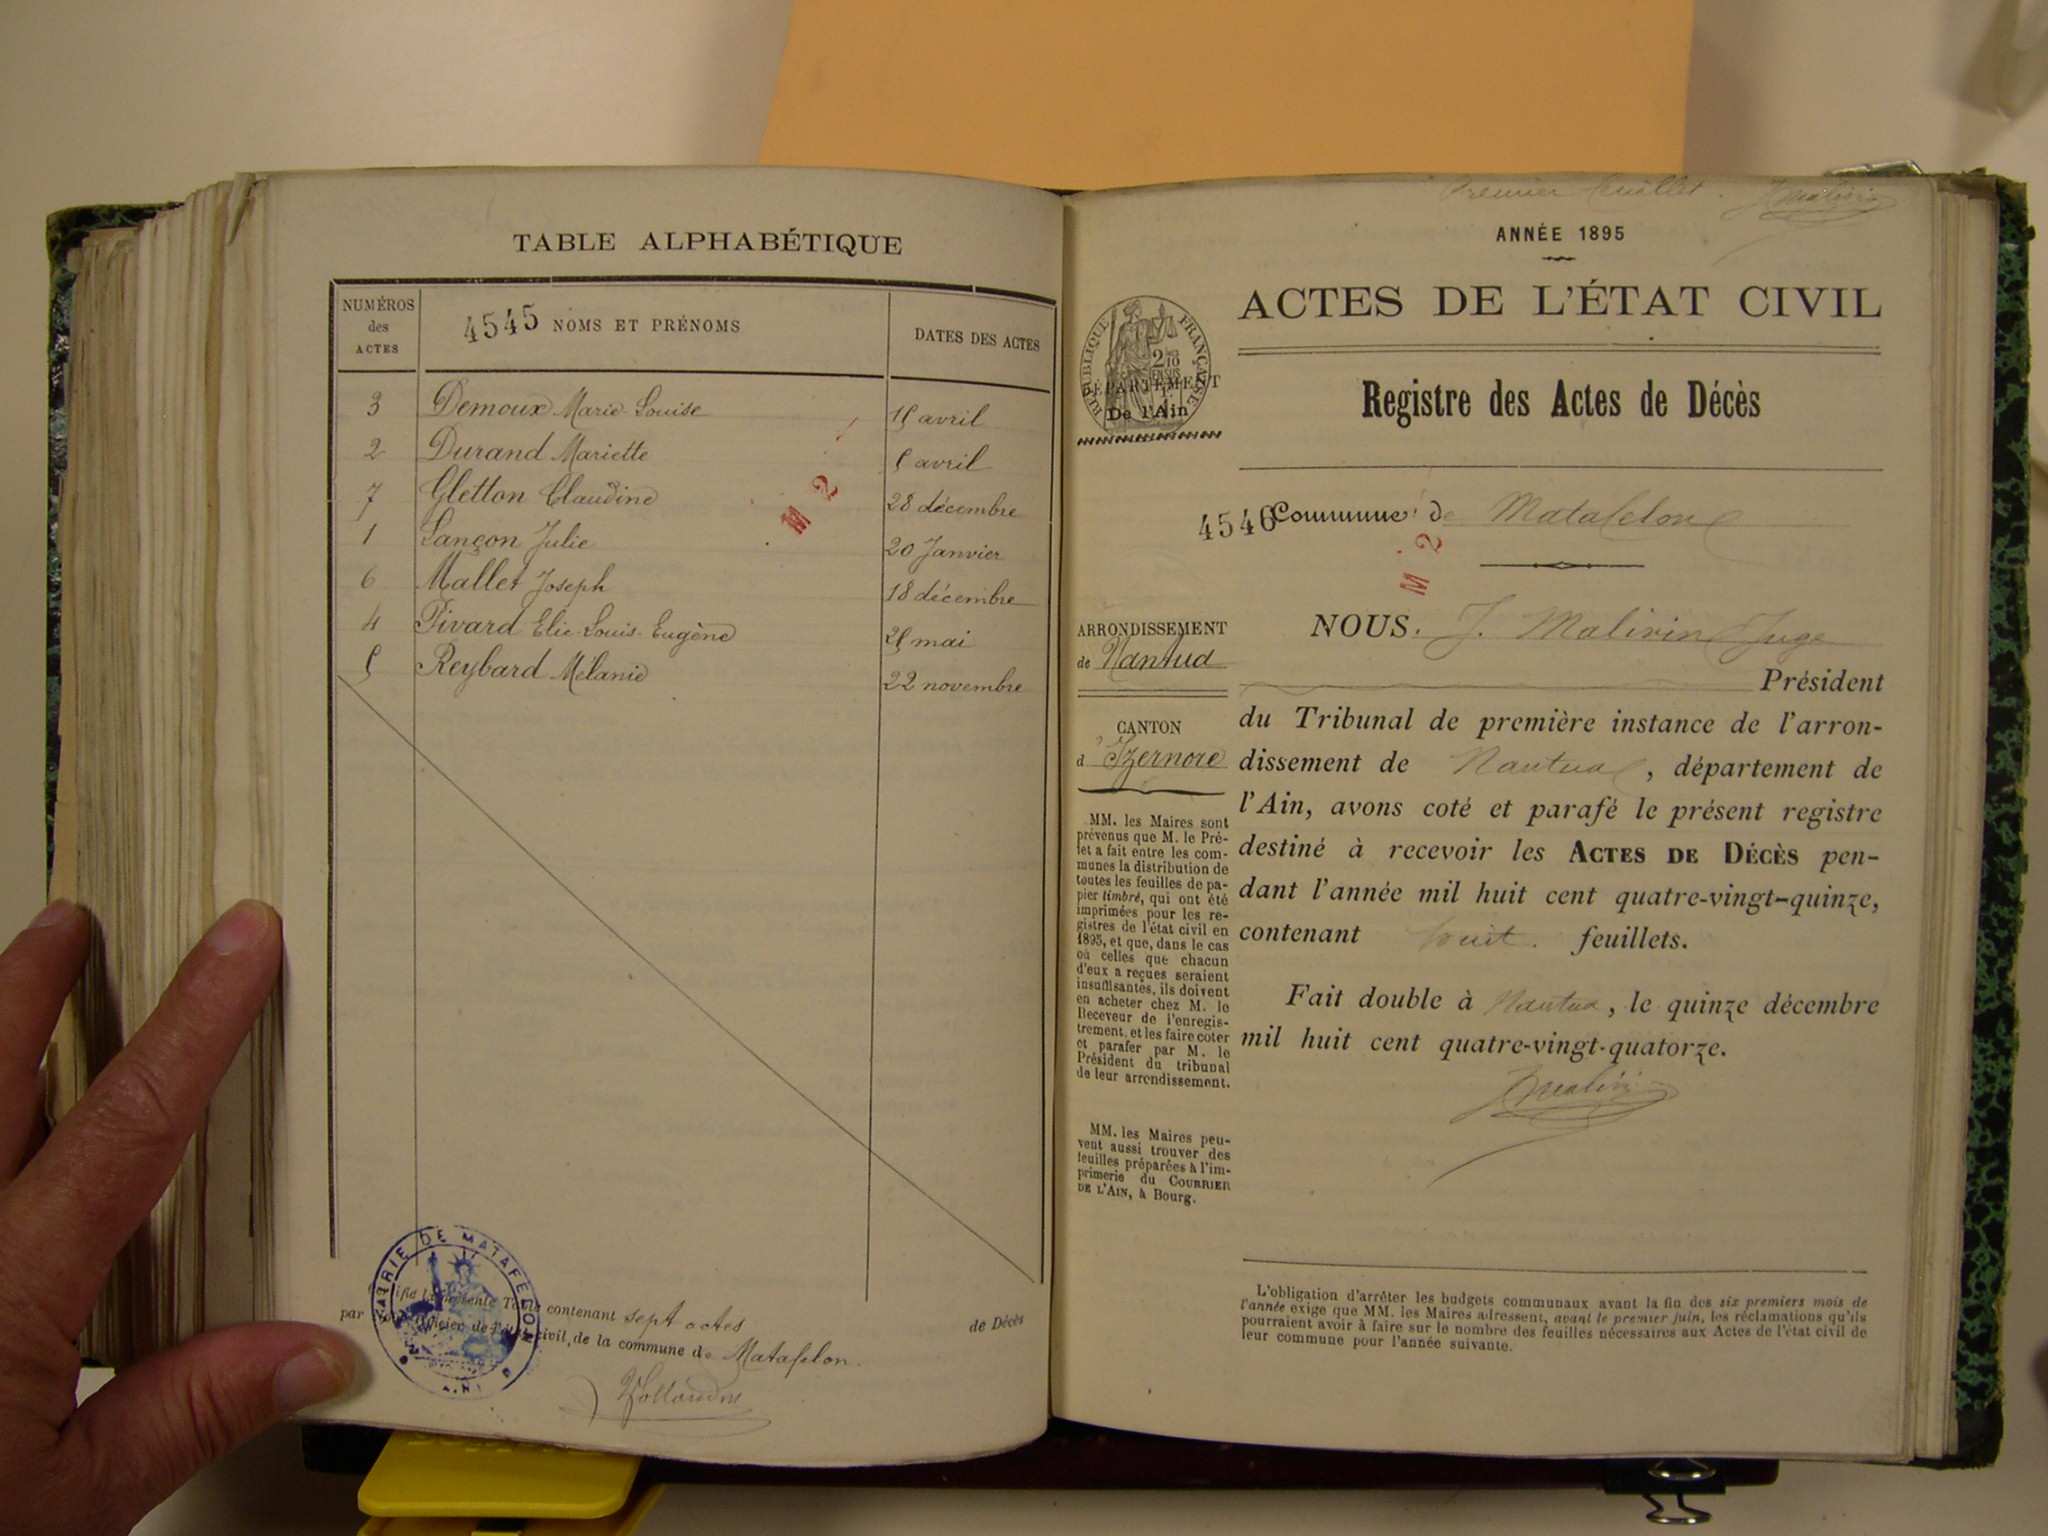 TABLE ALPHABÉTIQUE
NUMÉROS des ACTES
4545 NOMS ET PRÉNOMS
DATES DES ACTES
3 Demoux Marie-Louise 15 avril
2 Durand Mariette 5 avril
7 Gletton Claudine 28 décembre
1 Lançon Julie 20 Janvier
6 Mallet Joseph 18 décembre
4 Pivard Elie-Louis-Eugène 25 mai
5 Reybard Mélanie 22 novembre
M 2
MAIRIE DE MATAFELON
AIN
la présente Table contenant sept actes de Décès
par Nous, officier de l'état civil, de la commune de Matafelon.
Premier feuillet. J Malivin
ANNÉE 1895
ACTES DE L'ÉTAT CIVIL
RÉPUBLIQUE FRANÇAISE
DÉPARTEMENT
De l'Ain
Registre des Actes de Décès
4546 Commune de Matafelon
M 2
ARRONDISSEMENT
de Nantua
CANTON
d'Izernore
MM. les Maires sont
prévenus que M. le Pré-
fet a fait entre les com-
munes la distribution de
toutes les feuilles de pa-
pier timbré, qui ont été
imprimées pour les re-
gistres de l'état civil en
1895, et que, dans le cas
où celles que chacun
d'eux a reçues seraient
insuffisantes, ils doivent
en acheter chez M. le
Receveur de l'enregis-
trement, et les faire coter
et parafer par M. le
Président du tribunal
de leur arrondissement.
MM. les Maires peu-
vent aussi trouver des
feuilles préparées à l'im-
primerie du COURRIER
DE L'AIN, à Bourg.
NOUS. J. Malivin Juge
Président
du Tribunal de première instance de l'arron-
dissement de Nantua, département de
l'Ain, avons coté et parafé le présent registre
destiné à recevoir les ACTES DE DÉCÈS pen-
dant l'année mil huit cent quatre-vingt-quinze,
contenant huit feuillets.
Fait double à Nantua, le quinze décembre
mil huit cent quatre-vingt-quatorze.
J Malivin
L'obligation d'arrêter les budgets communaux avant la fin des six premiers mois de
l'année exige que MM. les Maires adressent, avant le premier juin, les réclamations qu'ils
pourraient avoir à faire sur le nombre des feuilles nécessaires aux Actes de l'état civil de
leur commune pour l'année suivante.